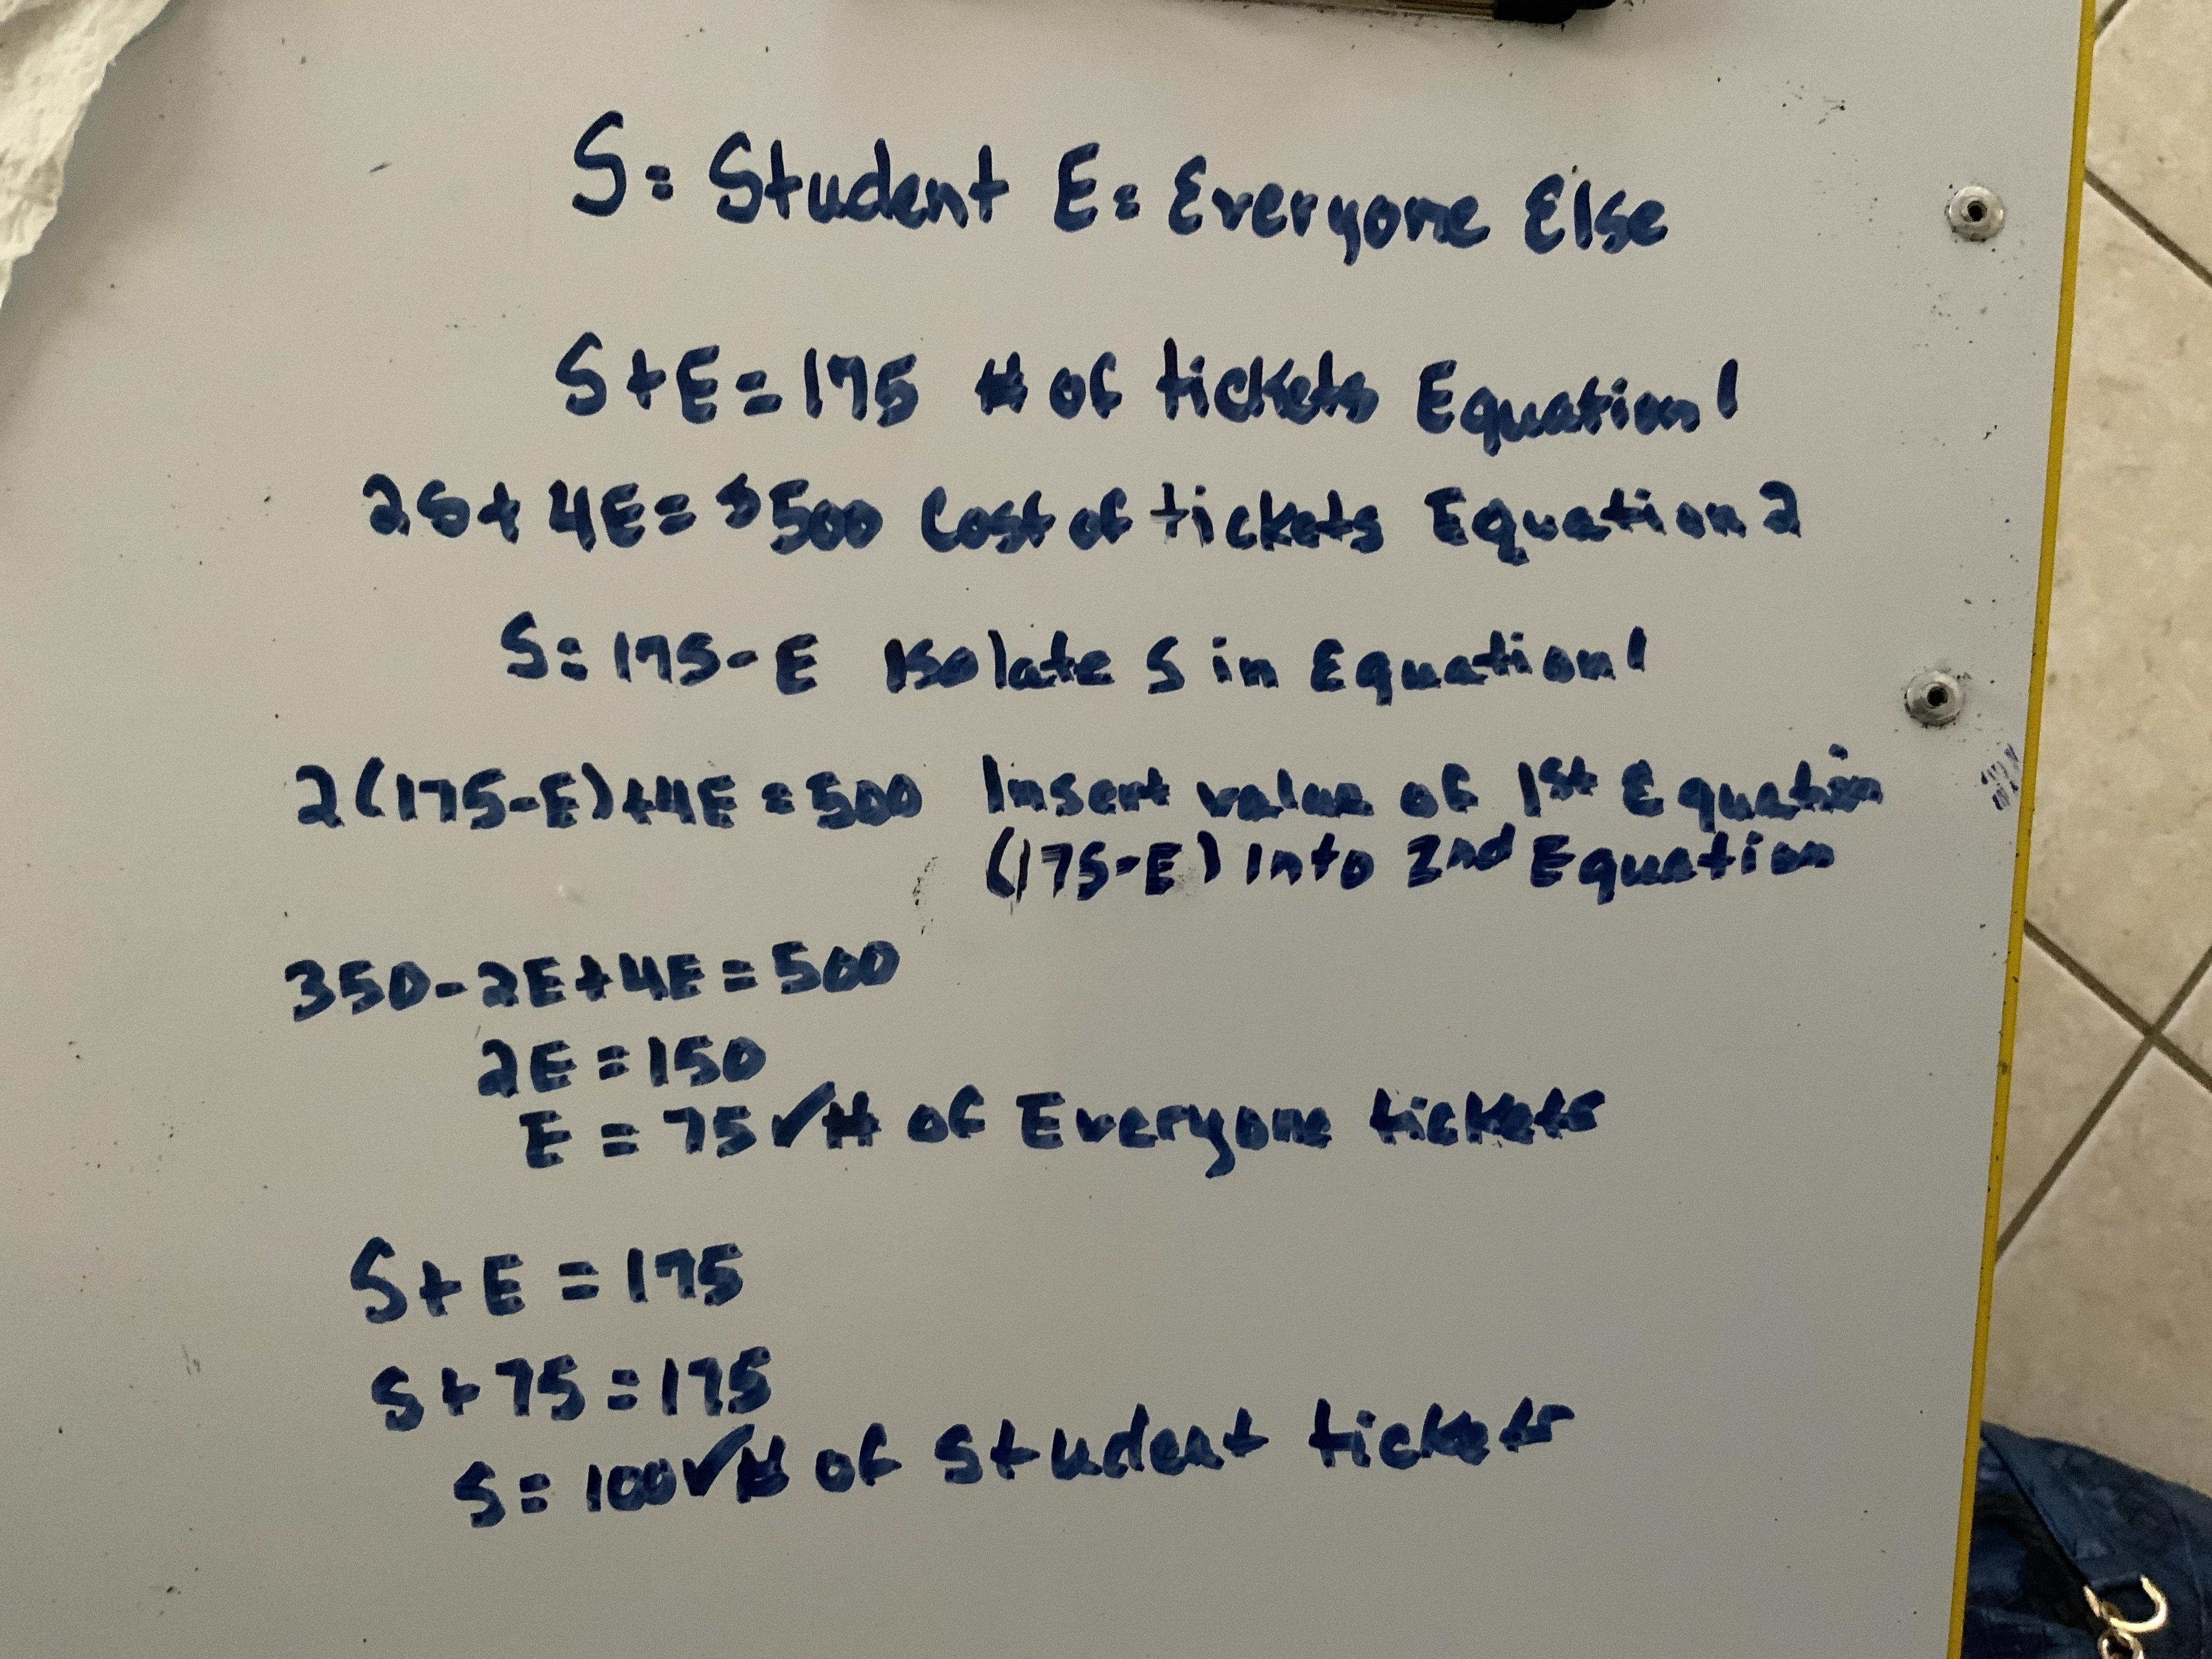 S= Student E= Everyone Else
S+E=175 # of tickets Equation 1
2S+4E=$500 Cost of tickets Equation 2
S=175-E Isolate S in Equation 1
2(175-E)+4E=500 Insert value of 1st Equation
(175-E) into 2nd Equation
350-2E+4E=500
2E=150
E=75✓# of Everyone tickets
S+E=175
S+75=175
S=100✓# of Student tickets